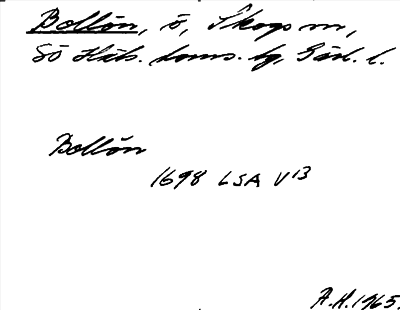 Bollön, ö, Skogs sn,
Sö Häls. doms. tg, Gävl. l.
Bollön
1698 LSA V13
A.H. 1965.